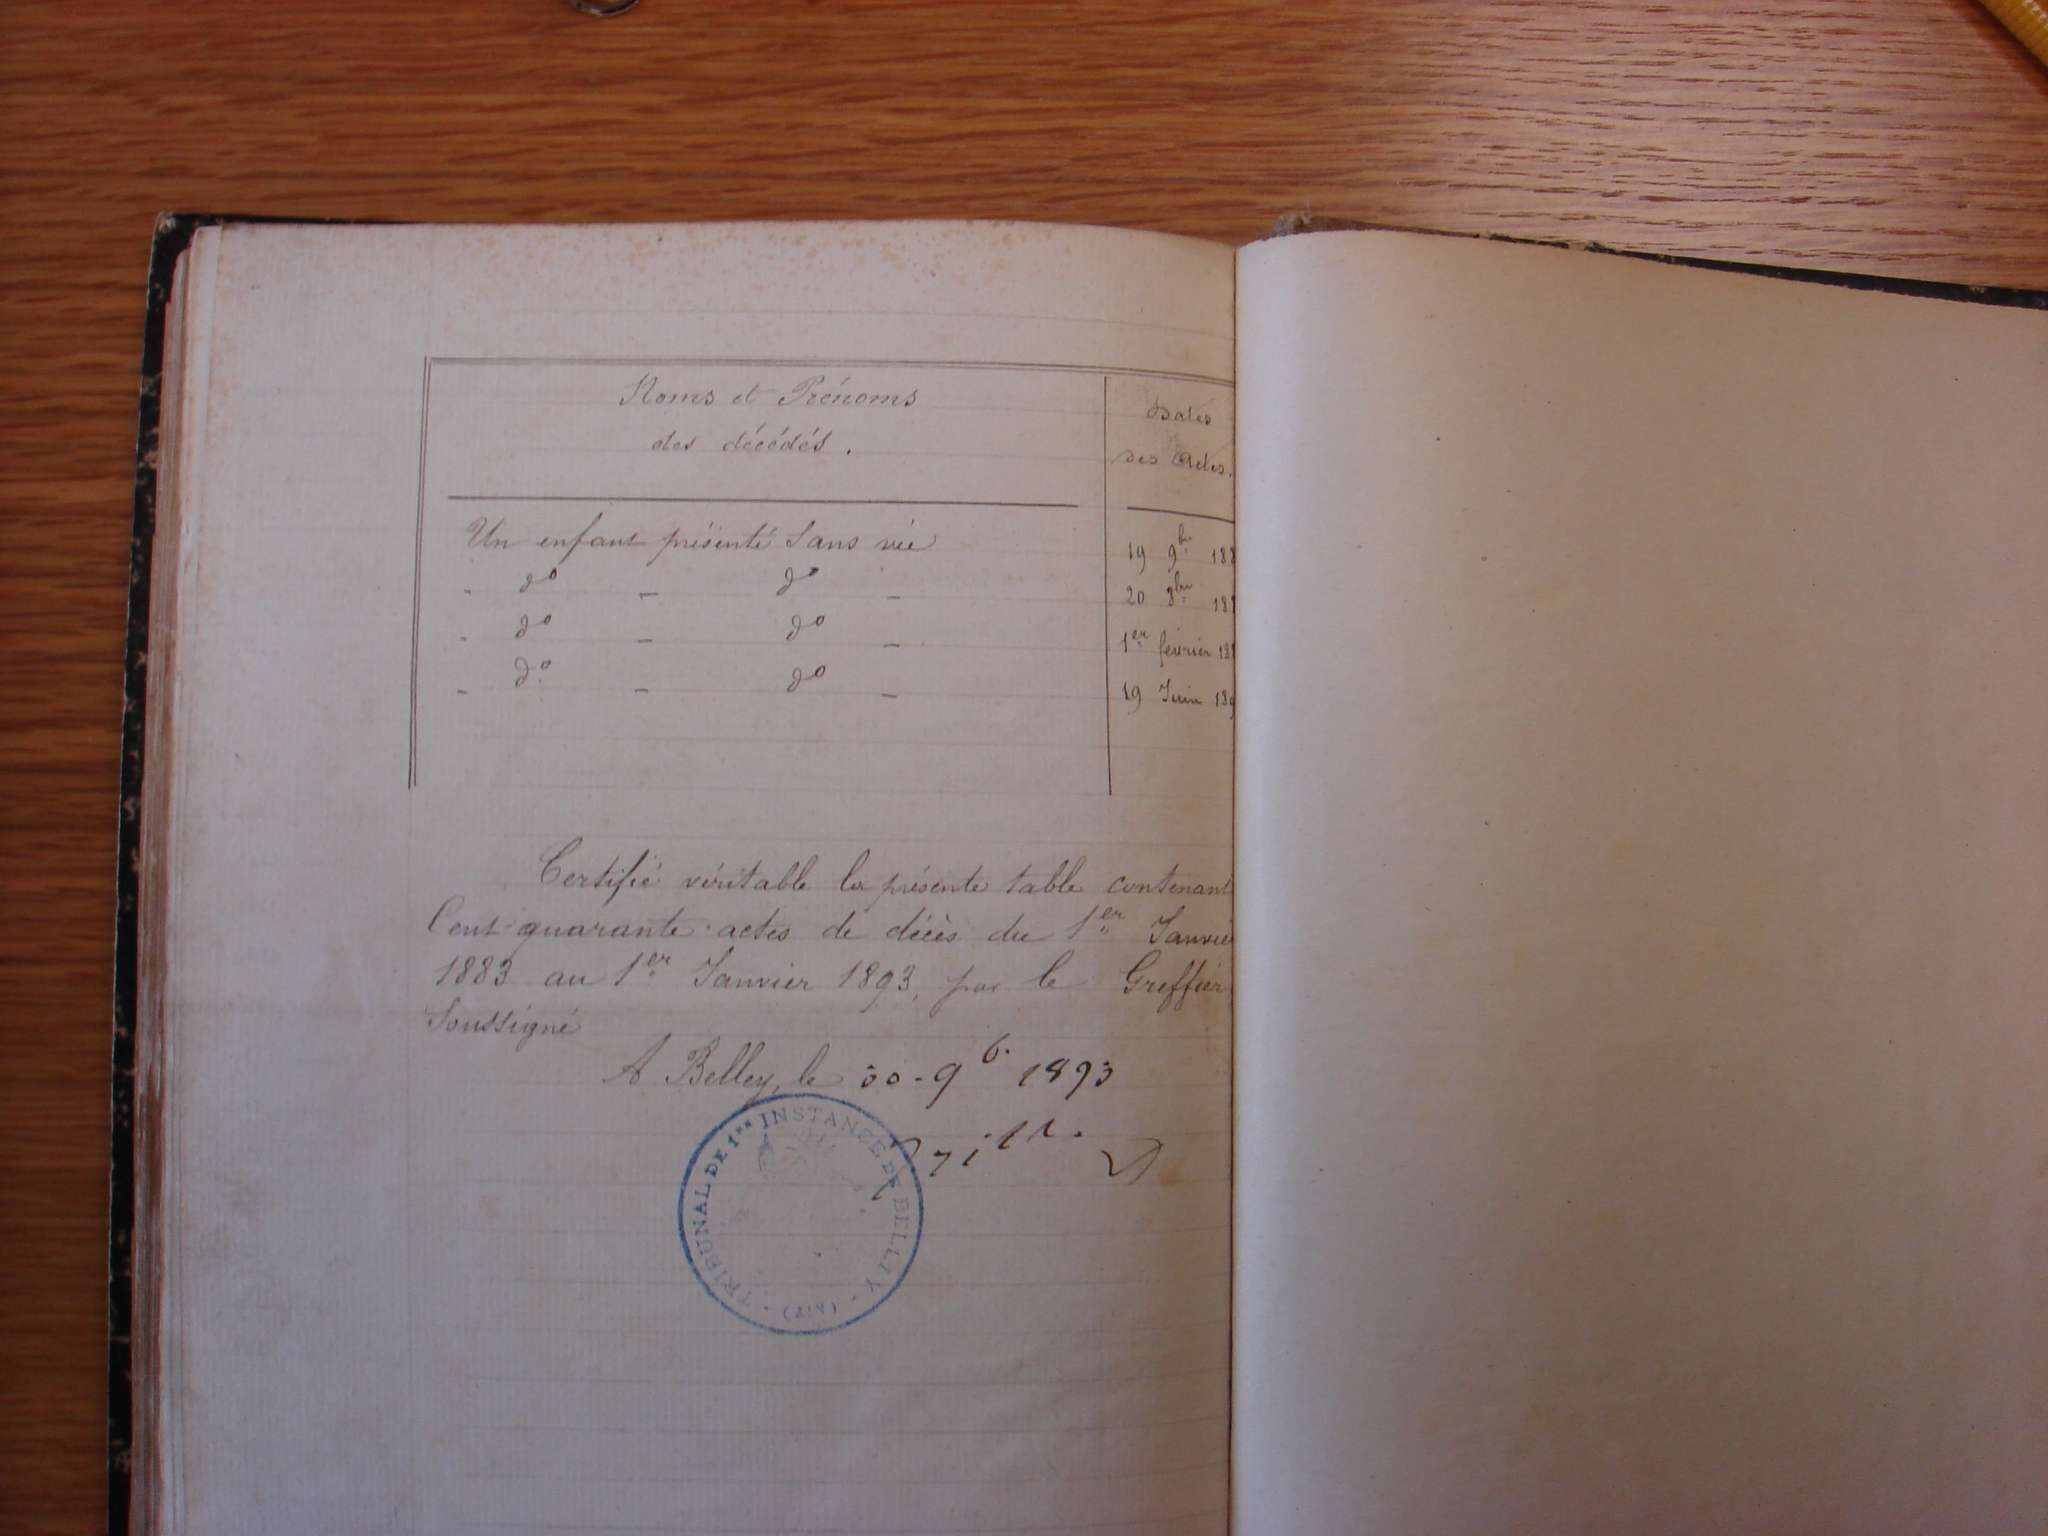 Noms et Prénoms
des décédés.
Dates
des Actes.
Un enfant présenté Sans vie 19 9bre 188
- do - do - 20 8bre 188
- do - do - 1er février 18
- do - do - 19 Juin 189
Certifié véritable la présente table contenant
Cent quarante actes de décès du 1er Janvie
1883 au 1er Janvier 1893, par le Greffier
Soussigné
A Belley, le 30-9b. 1893
TRIBUNAL DE 1RE INSTANCE DE BELLEY
(AIN)